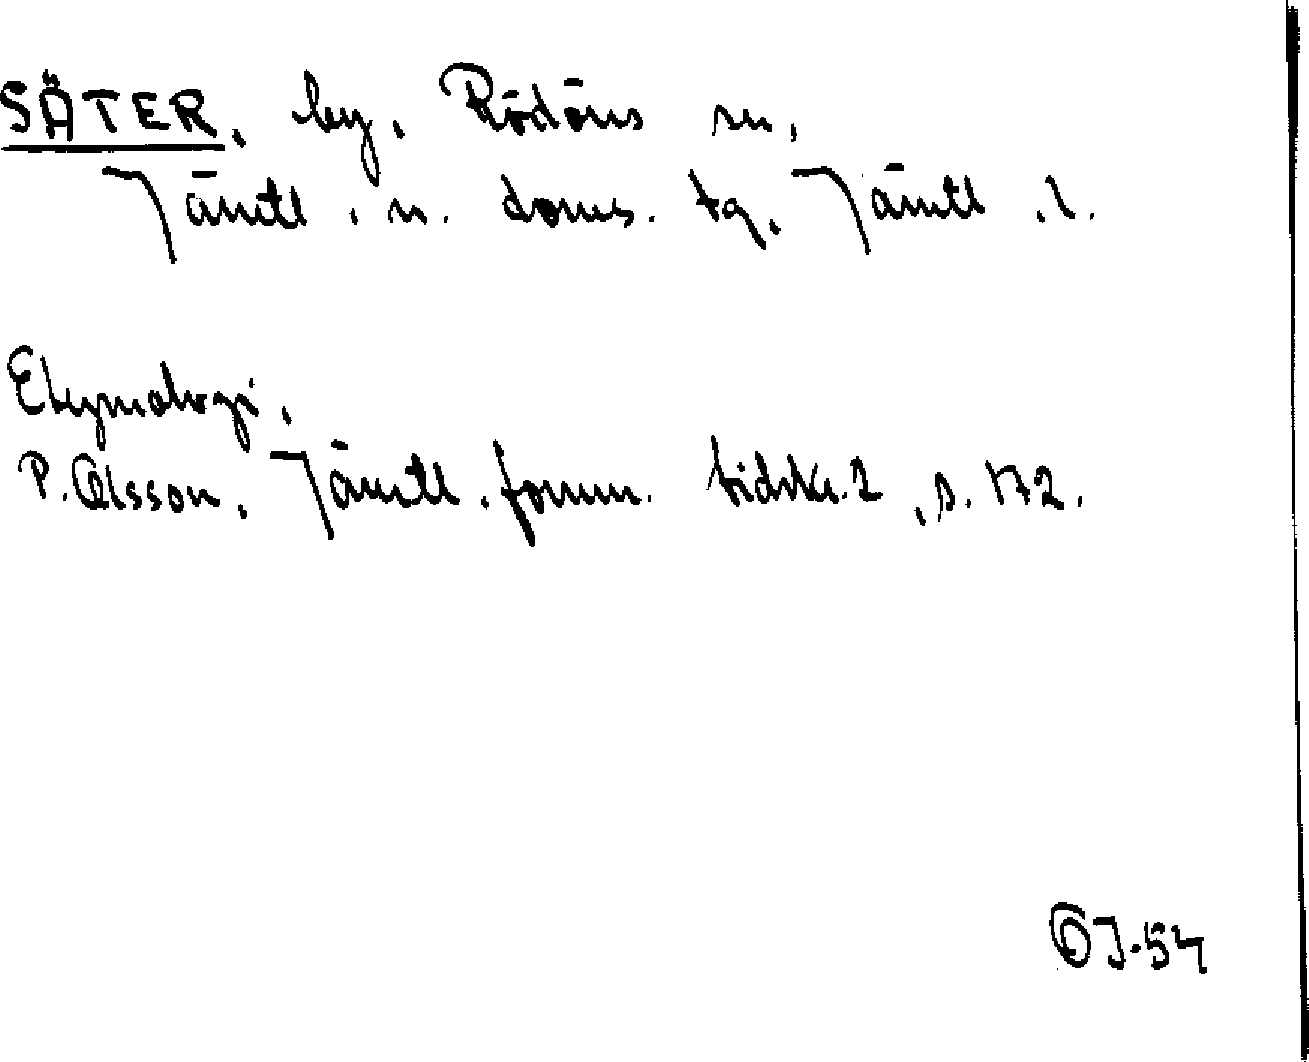 SÄTER, by, Rödöns sn,
Jämtl. n. doms. tg, Jämtl. l.
Etymologi.
P. Olsson, Jämtl. fornm. tidskr. 2, s. 172.
OJ-54